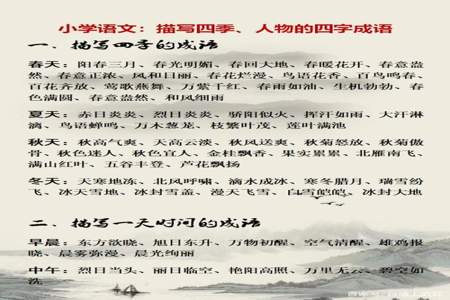 小学语文：描写四季、人物的四字成语
一、描写四季的成语
春天：阳春三月、春光明媚、春回大地、春暖花开、春意盎
然、春意正浓、风和日丽、春花烂漫、鸟语花香、百鸟鸣春、
百花齐放、莺歌燕舞、万紫千红、春雨如油、生机勃勃、春
色满圆、春意盎然、和风细雨
夏天：赤日炎炎、烈日炎炎、骄阳似火、挥汗如雨、大汗淋
漓、鸟语蝉鸣、万木葱茏、枝繁叶茂、莲叶满池
秋天：秋高气爽、天高云淡、秋风送爽、秋菊怒放、秋菊傲
骨、秋色迷人、秋色宜人、金桂飘香、果实累累、北雁南飞、
满山红叶、五谷丰登、芦花飘扬
冬天：天寒地冻、北风呼啸、滴水成冰、寒冬腊月、瑞雪纷
飞、冰天雪地、冰封雪盖、漫天飞雪、白雪皑皑、冰封大地
二、描写一天时间的成语
早晨：东方欲晓、旭日东升、万物初醒、空气清醒、雄鸡报
晓、晨雾弥漫、晨光绚丽
中午：烈日当头、丽日临空、艳阳高照、万里无云、碧空如
洗